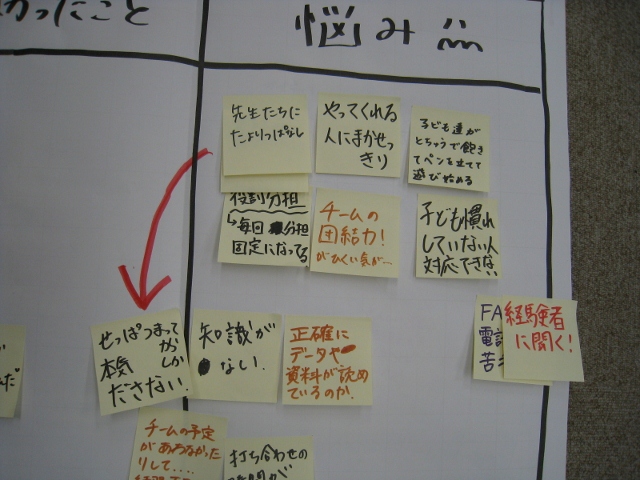 かったこと
悩み
先生たちに
たよりっぱなし
やってくれる
人にまかせっ
きり
子ども達が
とちゅうで飽き
てペンを立てて
遊び始める
役割分担
↳毎回 分担
固定になってる
チームの
団結力!
がひくい気が…
子ども慣れ
していない人
対応できない
せっぱつまって
からしか
本気
ださない.
知識が
ない.
正確に
データや
資料が読め
ているのか.
FA
電話
苦
経験者
に聞く!
チームの予定
があわなかった
りして....
打ち合わせの
時間が